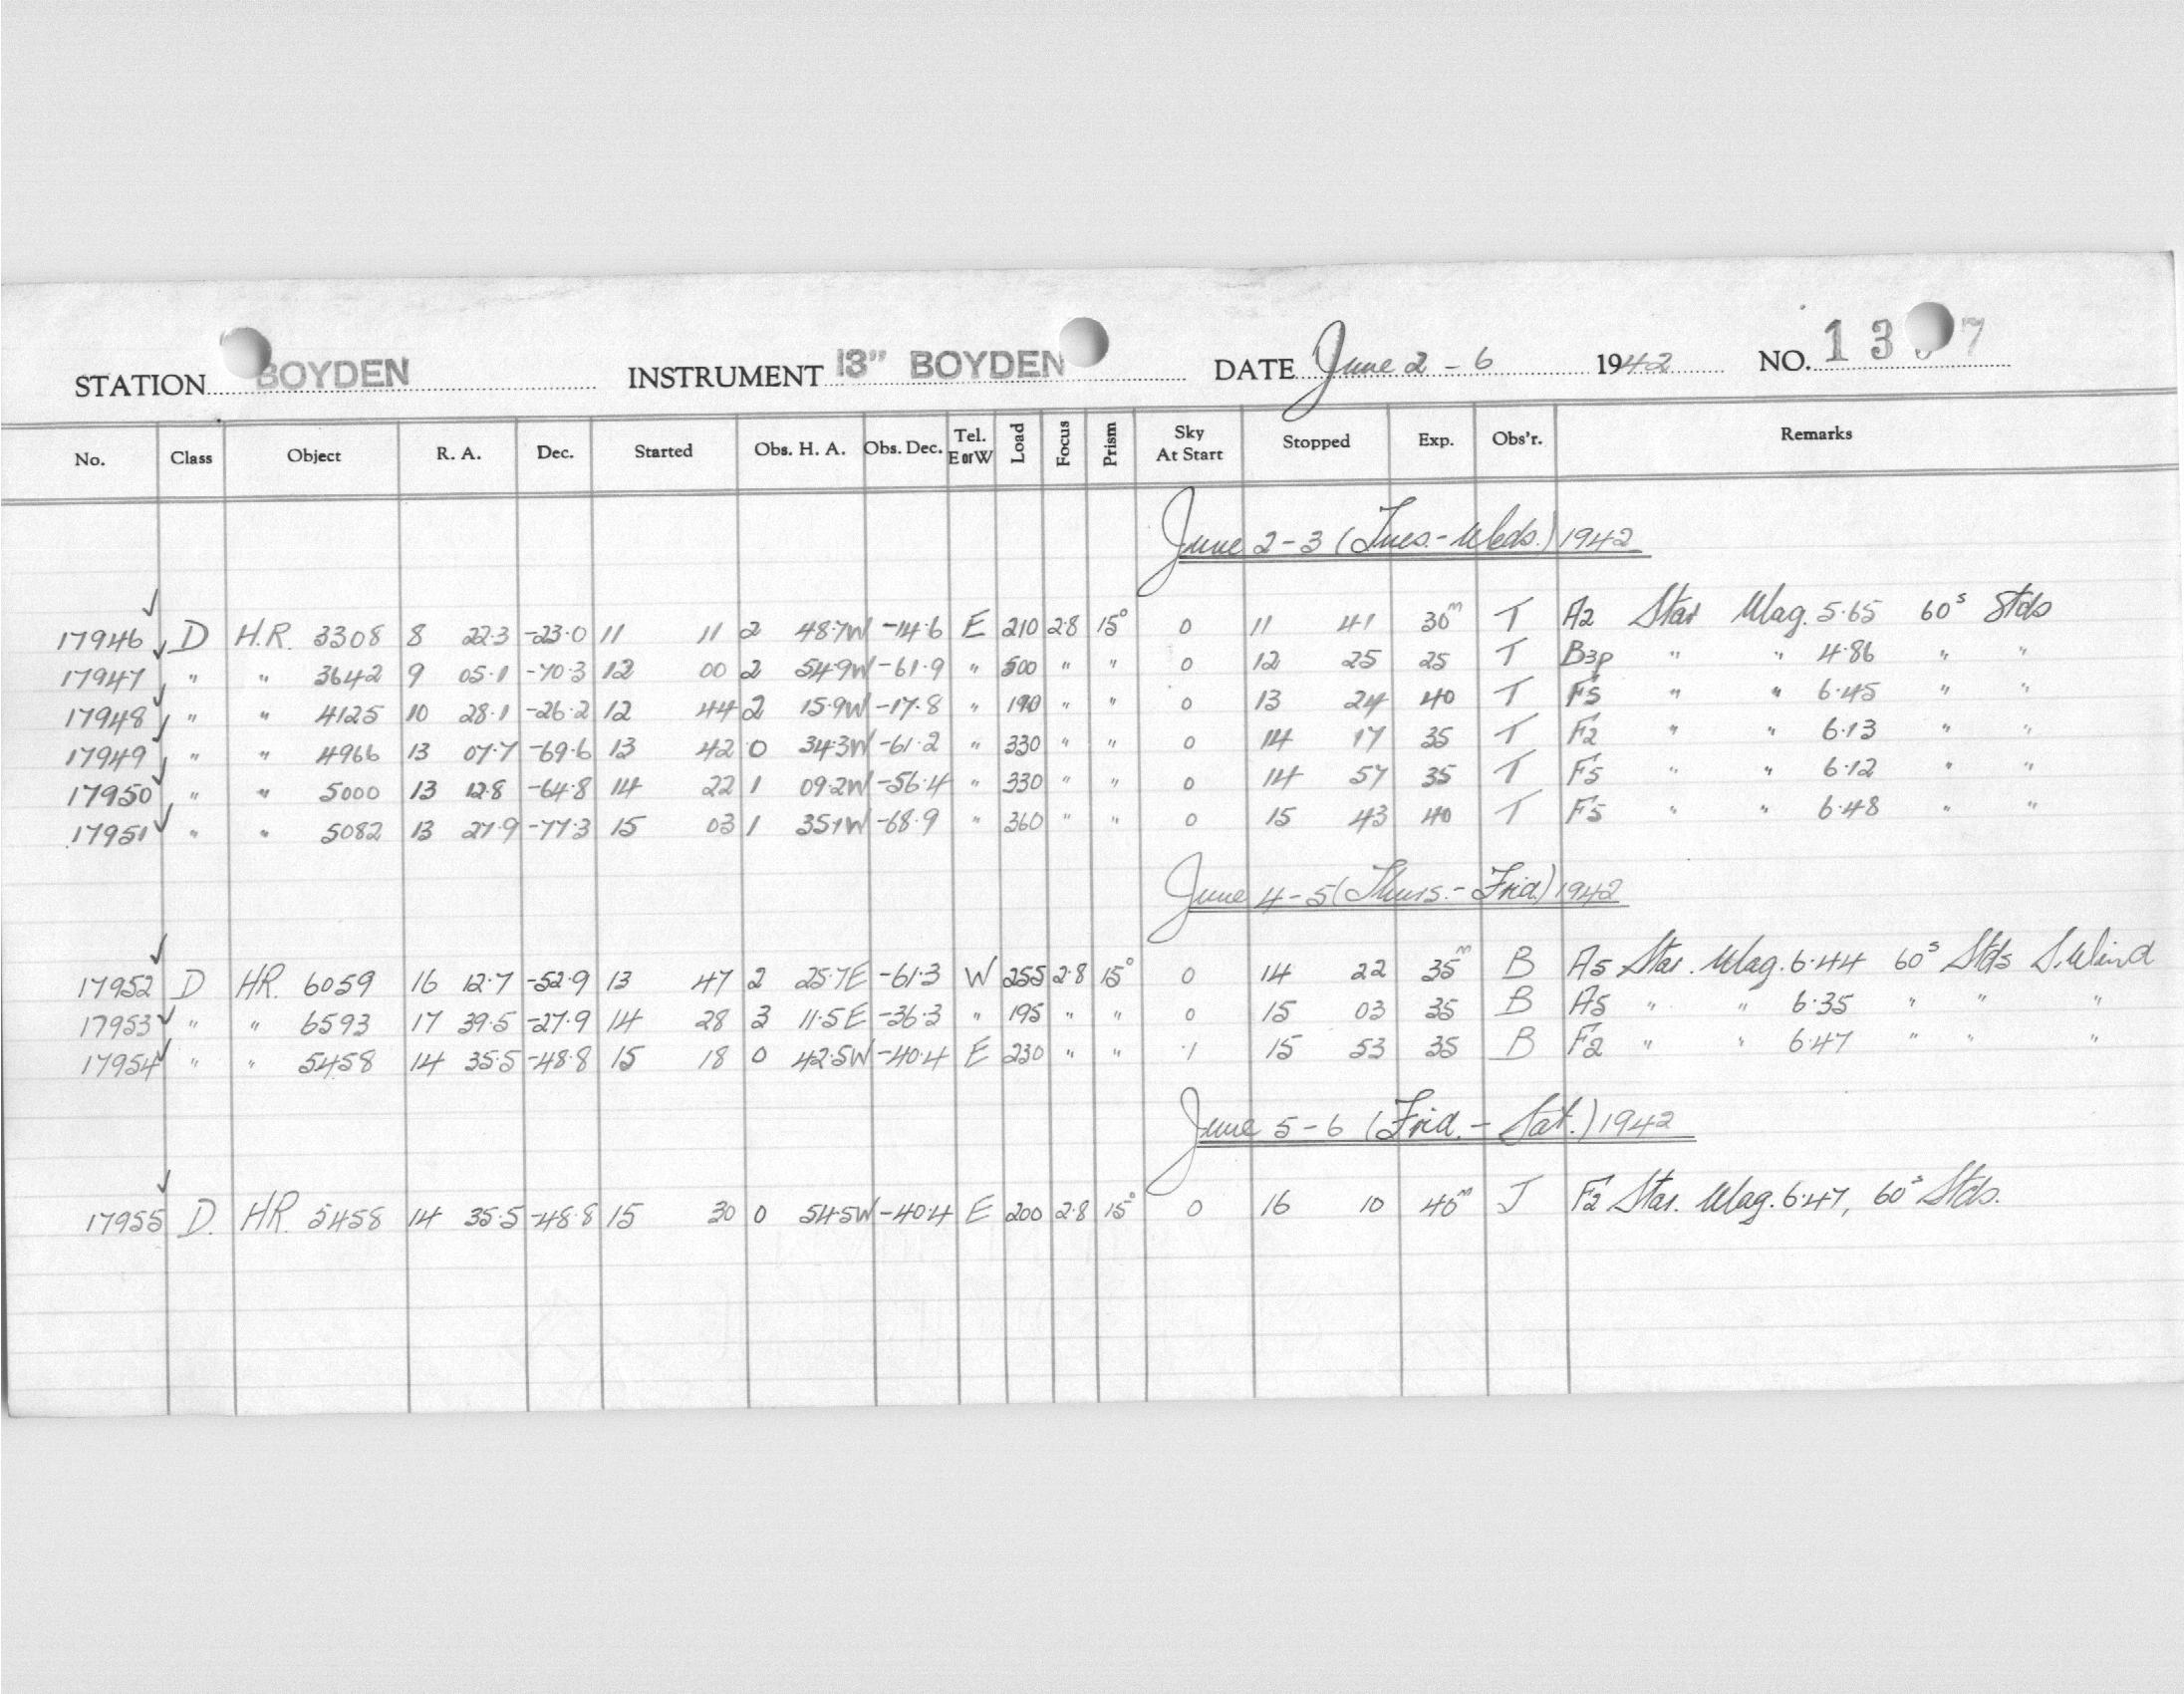 STATION BOYDEN INSTRUMENT 13" BOYDEN DATE June 2 - 6 1942 NO. 13 7
No. Class Object R. A. Dec. Started Obs. H. A. Obs. Dec. Tel. E or W Load Focus Prism Sky At Start Stopped Exp. Obs'r. Remarks
June 2-3 (Tues.-Weds.) 1942
17946 D H.R. 3308 8 22.3 -23.0 11 11 2 48.7W -14.6 E 210 2.8 15° 0 11 41 30m T A2 Star Mag. 5.65 60s Stds
17947 " " 3642 9 05.1 -70.3 12 00 2 54.9W -61.9 " 500 " " 0 12 25 25 T B3p " " 4.86 " "
17948 " " 4125 10 28.1 -26.2 12 44 2 15.9W -17.8 " 190 " " 0 13 24 40 T F5 " " 6.45 " "
17949 " " 4966 13 07.7 -69.6 13 42 0 34.3W -61.2 " 330 " " 0 14 17 35 T F2 " " 6.13 " "
17950 " " 5000 13 12.8 -64.8 14 22 1 09.2W -56.4 " 330 " " 0 14 57 35 T F5 " " 6.12 " "
17951 " " 5082 13 27.9 -77.3 15 03 1 35.1W -68.9 " 360 " " 0 15 43 40 T F5 " " 6.48 " "
June 4-5 (Thurs.-Frid.) 1942
17952 D HR. 6059 16 12.7 -52.9 13 47 2 25.7E -61.3 W 255 2.8 15° 0 14 22 35m B A5 Star. Mag. 6.44 60s Stds S.Wind
17953 " " 6593 17 39.5 -27.9 14 28 3 11.5E -36.3 " 195 " " 0 15 03 35 B A5 " " 6.35 " " "
17954 " " 5458 14 35.5 -48.8 15 18 0 42.5W -40.4 E 230 " " .1 15 53 35 B F2 " " 6.47 " " "
June 5-6 (Frid.-Sat.) 1942
17955 D. HR. 5458 14 35.5 -48.8 15 30 0 54.5W -40.4 E 200 2.8 15° 0 16 10 40m J F2 Star. Mag. 6.47, 60s Stds.